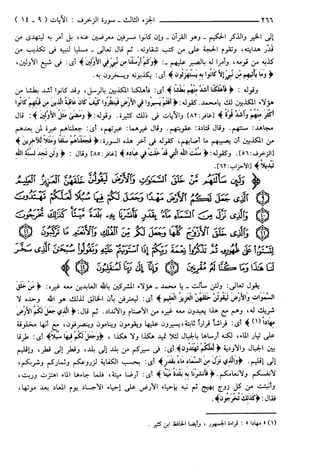 ٢٦٦ الجزء الثالث - سورة الزخرف : الآيات ( ٩ - ١٤ )
إلى الخير والذكر الحكيم - وهو القرآن - وإن كانوا مسرفين معرضين عنه، بل أمر به ليهتدي من
قدَّر هدايته، وتقوم الحجة على من كتب شقاوته. ثم قال تعالى - مسليا لنبيه في تكذيب من
كذبه من قومه، وآمرا له بالصبر عليهم -: ﴿وَكَمْ أَرْسَلْنَا مِن نَّبِيٍّ فِي الْأَوَّلِينَ﴾ أي: في شيع الأولين،
﴿وَمَا يَأْتِيهِم مِّن نَّبِيٍّ إِلَّا كَانُوا بِهِ يَسْتَهْزِئُونَ﴾ أي: يكذبونه ويسخرون به.
وقوله : ﴿فَأَهْلَكْنَا أَشَدَّ مِنْهُم بَطْشًا﴾ أي: فأهلكنا المكذبين بالرسل، وقد كانوا أشد بطشا من
هؤلاء المكذبين لك يا محمد. كقوله: ﴿أَفَلَمْ يَسِيرُوا فِي الْأَرْضِ فَيَنظُرُوا كَيْفَ كَانَ عَاقِبَةُ الَّذِينَ مِن قَبْلِهِمْ كَانُوا
أَكْثَرَ مِنْهُمْ وَأَشَدَّ قُوَّةً﴾ [غافر: ٨٢] والآيات في ذلك كثيرة. وقوله: ﴿وَمَضَىٰ مَثَلُ الْأَوَّلِينَ﴾: قال
مجاهد: سنتهم. وقال قتادة: عقوبتهم. وقال غيرهما: عبرتهم، أي: جعلناهم عبرة لمن بعدهم
من المكذبين أن يصيبهم ما أصابهم، كقوله في آخر هذه السورة: ﴿فَجَعَلْنَاهُمْ سَلَفًا وَمَثَلًا لِّلْآخِرِينَ﴾
[الزخرف: ٥٦]. وكقوله: ﴿سُنَّتَ اللَّهِ الَّتِي قَدْ خَلَتْ فِي عِبَادِهِ﴾ [غافر: ٨٥] وقال : ﴿وَلَن تَجِدَ لِسُنَّةِ اللَّهِ
تَبْدِيلًا﴾ [الأحزاب: ٦٢].
وَلَئِن سَأَلْتَهُم مَّنْ خَلَقَ السَّمَاوَاتِ وَالْأَرْضَ لَيَقُولُنَّ خَلَقَهُنَّ الْعَزِيزُ الْعَلِيمُ
﴿٩﴾ الَّذِي جَعَلَ لَكُمُ الْأَرْضَ مَهْدًا وَجَعَلَ لَكُمْ فِيهَا سُبُلًا لَّعَلَّكُمْ تَهْتَدُونَ
﴿١٠﴾ وَالَّذِي نَزَّلَ مِنَ السَّمَاءِ مَاءً بِقَدَرٍ فَأَنشَرْنَا بِهِ بَلْدَةً مَّيْتًا كَذَٰلِكَ تُخْرَجُونَ
﴿١١﴾ وَالَّذِي خَلَقَ الْأَزْوَاجَ كُلَّهَا وَجَعَلَ لَكُم مِّنَ الْفُلْكِ وَالْأَنْعَامِ مَا تَرْكَبُونَ ﴿١٢﴾ لِتَسْتَوُوا
عَلَىٰ ظُهُورِهِ ثُمَّ تَذْكُرُوا نِعْمَةَ رَبِّكُمْ إِذَا اسْتَوَيْتُمْ عَلَيْهِ وَتَقُولُوا سُبْحَانَ الَّذِي سَخَّرَ
لَنَا هَٰذَا وَمَا كُنَّا لَهُ مُقْرِنِينَ ﴿١٣﴾ وَإِنَّا إِلَىٰ رَبِّنَا لَمُنقَلِبُونَ ﴿١٤﴾
يقول تعالى: ولئن سألت - يا محمد - هؤلاء المشركين بالله العابدين معه غيره: ﴿مَّنْ خَلَقَ
السَّمَاوَاتِ وَالْأَرْضَ لَيَقُولُنَّ خَلَقَهُنَّ الْعَزِيزُ الْعَلِيمُ﴾ أي: ليعترفن بأن الخالق لذلك هو الله وحده لا
شريك له، وهم مع هذا يعبدون معه غيره من الأصنام والأنداد. ثم قال: ﴿الَّذِي جَعَلَ لَكُمُ الْأَرْضَ
مِهَادًا (١)﴾ أي: فراشًا قرارًا ثابتة، يسيرون عليها ويقومون وينامون وينصرفون، مع أنها مخلوقة
على تيار الماء، لكنه أرساها بالجبال لئلا تميد هكذا ولا هكذا ، ﴿وَجَعَلَ لَكُمْ فِيهَا سُبُلًا﴾ أي: طرقا
بين الجبال والأودية ﴿لَّعَلَّكُمْ تَهْتَدُونَ﴾ أي: في سيركم من بلد إلى بلد، وقطر إلى قطر، وإقليم
إلى إقليم. ﴿وَالَّذِي نَزَّلَ مِنَ السَّمَاءِ مَاءً بِقَدَرٍ﴾ أي: بحسب الكفاية لزروعكم وثماركم وشربكم،
لأنفسكم ولأنعامكم. ﴿فَأَنشَرْنَا بِهِ بَلْدَةً مَّيْتًا﴾ أي: أرضا ميتة، فلما جاءها الماء اهتزت وربت،
وأنبتت من كل زوج بهيج ثم نبه بإحياء الأرض على إحياء الأجساد يوم المعاد بعد موتها،
فقال: ﴿كَذَٰلِكَ تُخْرَجُونَ﴾.
(١) مهادا : قراءة الجمهور ، وأيضا الحافظ ابن كثير .